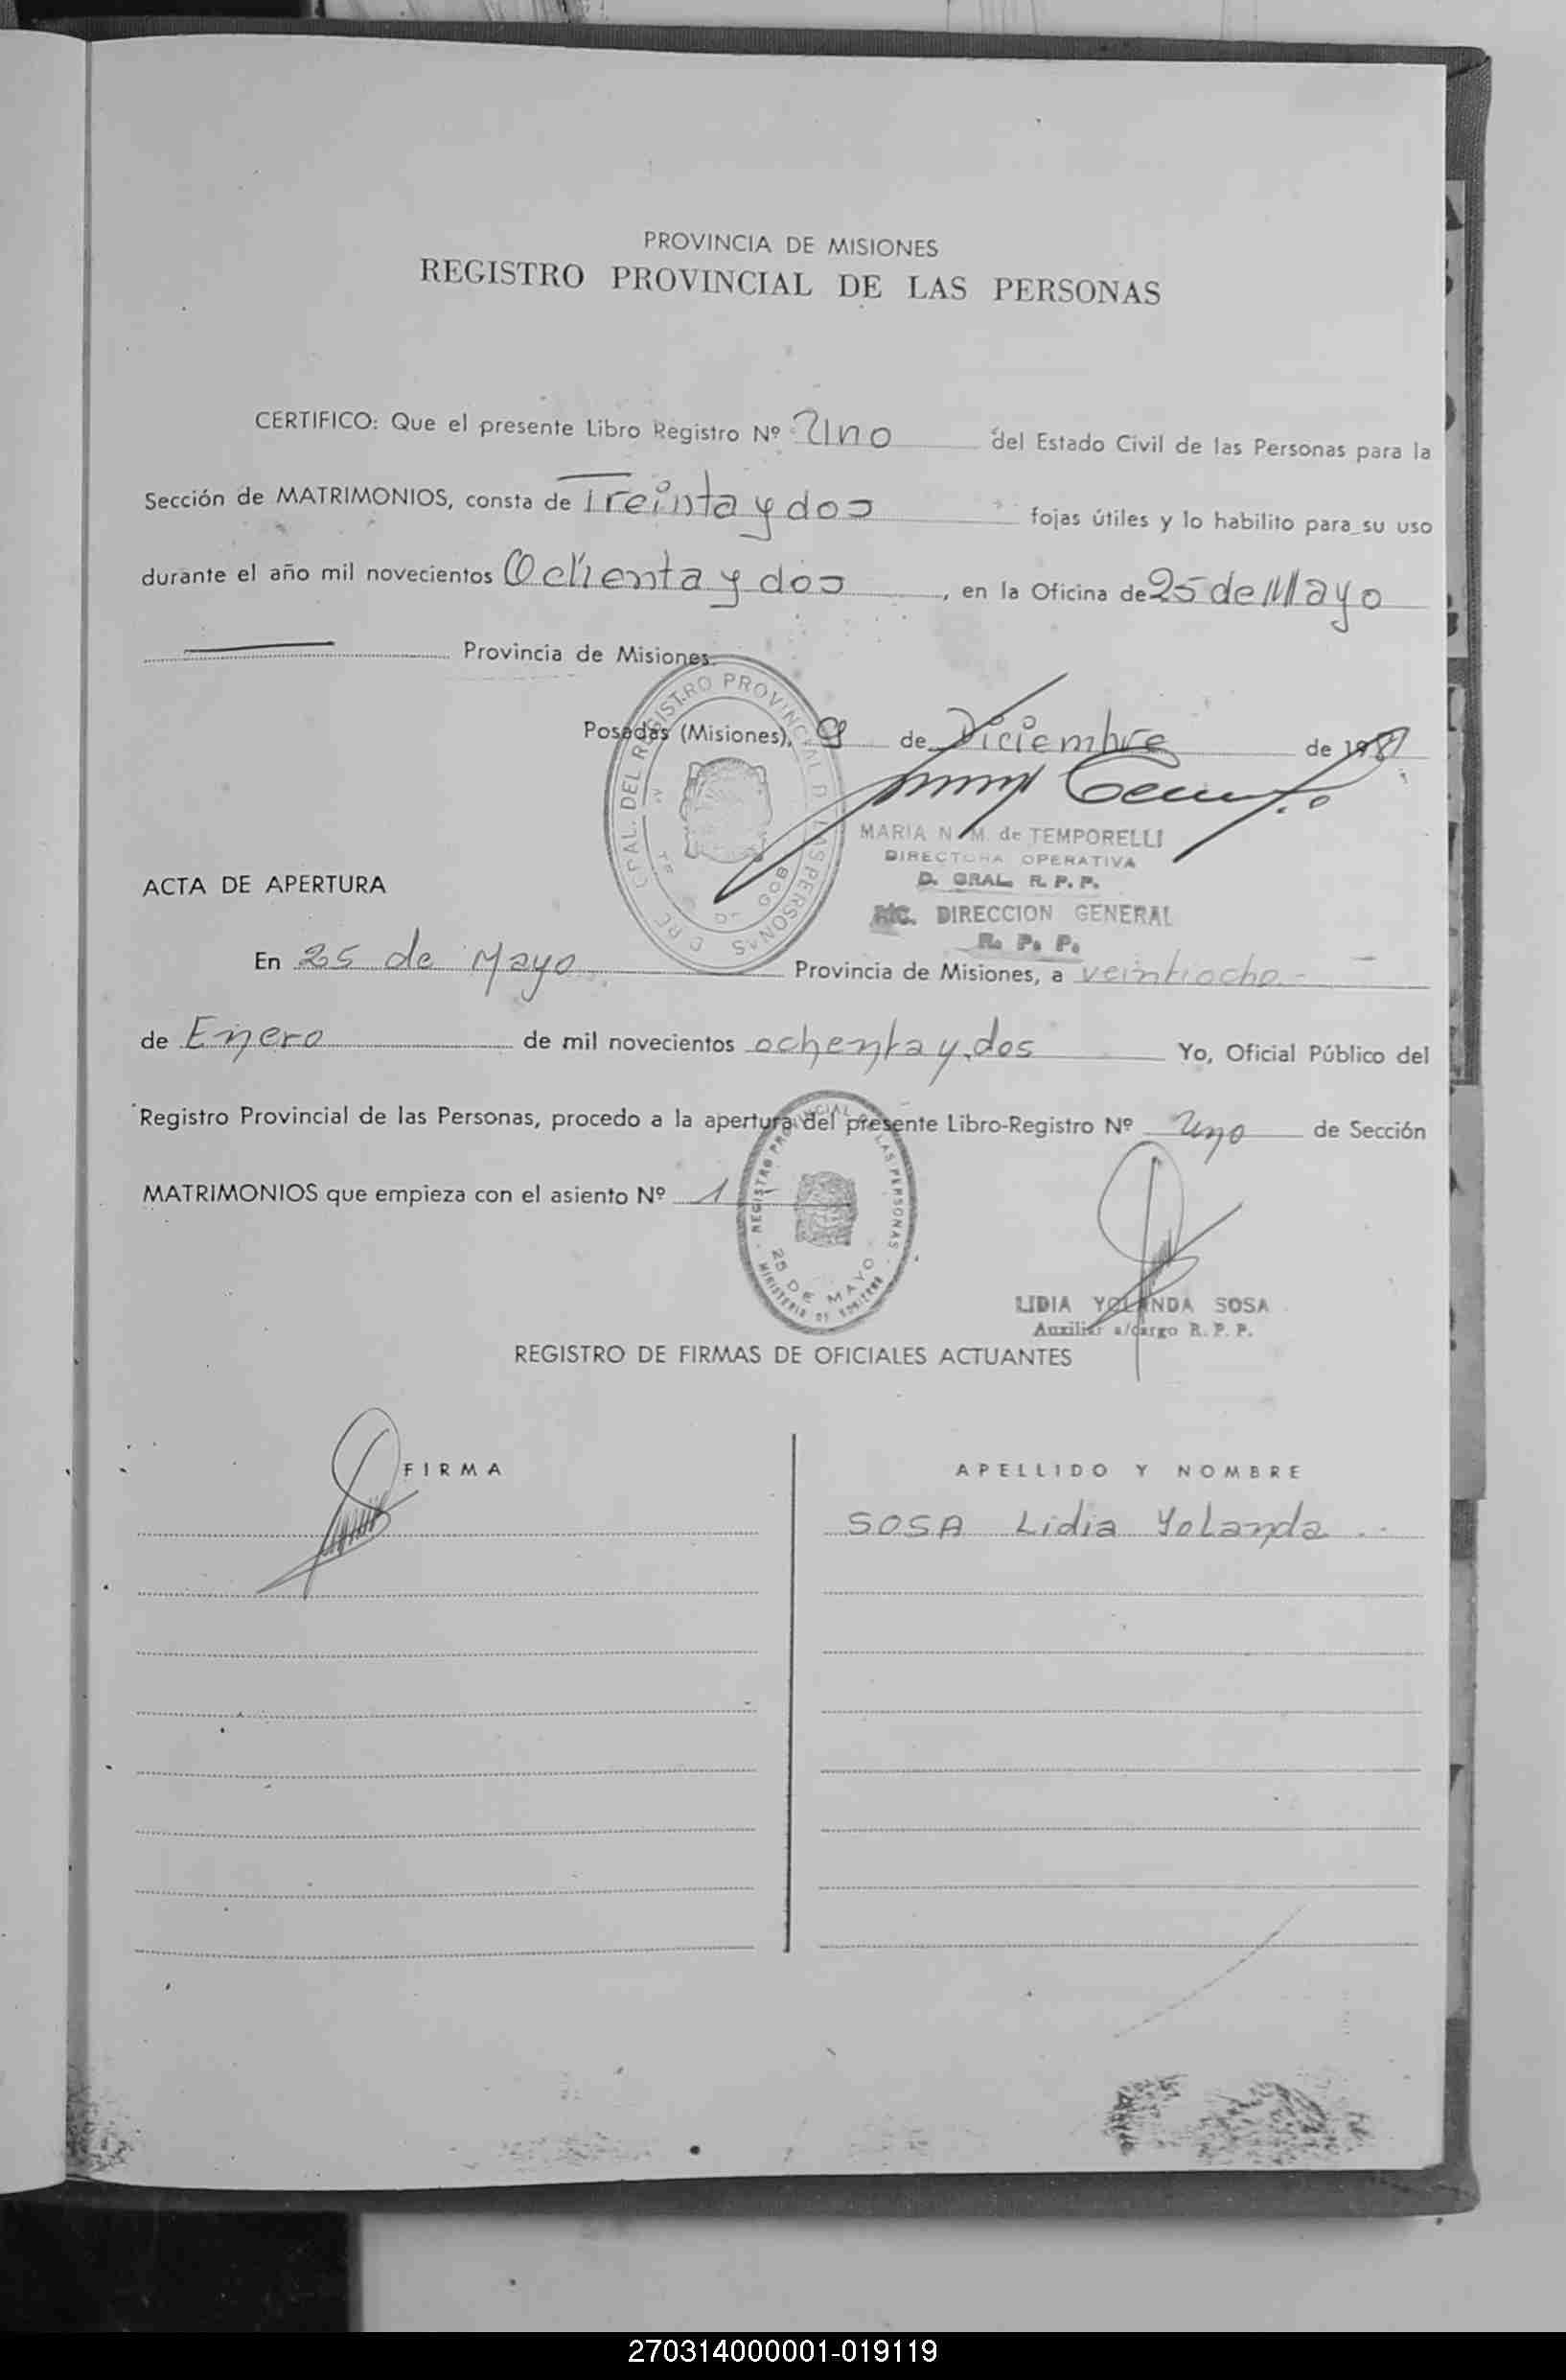 PROVINCIA DE MISIONES
REGISTRO PROVINCIAL DE LAS PERSONAS
CERTIFICO: Que el presente Libro Registro Nº Uno del Estado Civil de las Personas para la
Sección de MATRIMONIOS, consta de Treinta y dos fojas útiles y lo habilito para su uso
durante el año mil novecientos Ochenta y dos, en la Oficina de 25 de Mayo
Provincia de Misiones.
Posadas (Misiones), 9 de Diciembre de 1981
MARIA N. M. de TEMPORELLI
DIRECTORA OPERATIVA
D. GRAL. R. P. P.
DIRECCION GENERAL
R. P. P.
ACTA DE APERTURA
En 25 de Mayo Provincia de Misiones, a veintiocho
de Enero de mil novecientos ochenta y dos Yo, Oficial Público del
Registro Provincial de las Personas, procedo a la apertura del presente Libro-Registro Nº Uno de Sección
MATRIMONIOS que empieza con el asiento Nº 1
REGISTRO PROVINCIAL DE LAS PERSONAS
25 DE MAYO
MINISTERIO DE GOBIERNO
LIDIA YOLANDA SOSA
Auxiliar a/cargo R. P. P.
REGISTRO DE FIRMAS DE OFICIALES ACTUANTES
FIRMA APELLIDO Y NOMBRE
SOSA Lidia Yolanda
270314000001-019119